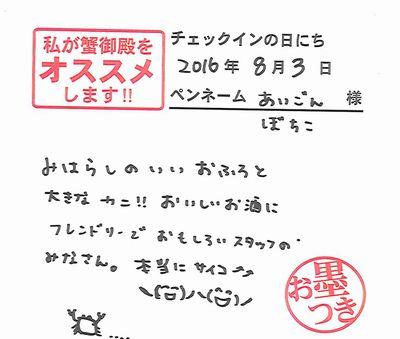 私が蟹御殿を
オススメ
します!!
チェックインの日にち
2016年 8月3日
ペンネーム あいごん 様
ぽちこ
みはらしのいい おふろと
大きな カニ!! おいしいお酒に
フレンドリーで おもしろいスタッフの
みなさん。本当に サイコー
\(^o^)/\(^o^)/
お墨つき